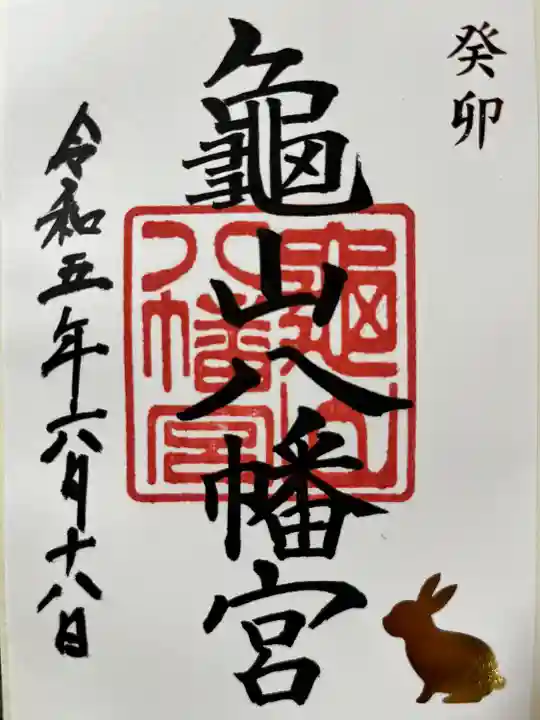 癸卯
龜山八幡宮
龜山
八幡宮
令和五年六月十八日